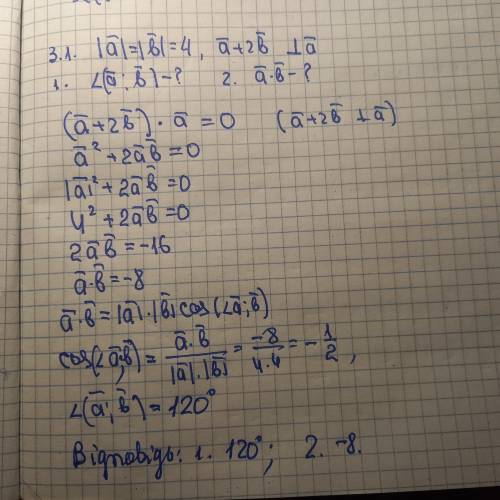 3.1. |a̅|=|b̅|=4, a̅+2b̅ ⊥a̅
1. ∠(a̅;b̅)-? 2. a̅·b̅-?
(a̅+2b̅)·a̅=0 (a̅+2b̅ ⊥a̅)
a̅²+2a̅b̅=0
|a̅|²+2a̅b̅=0
4²+2a̅b̅=0
2a̅b̅=-16
a̅·b̅=-8
a̅·b̅=|a̅|·|b̅|cos(∠a̅;b̅)
cos(∠a̅;b̅)= a̅·b̅/|a̅|·|b̅| = -8/4·4 = -1/2,
∠(a̅;b̅)=120°
Відповідь: 1. 120°; 2. -8.